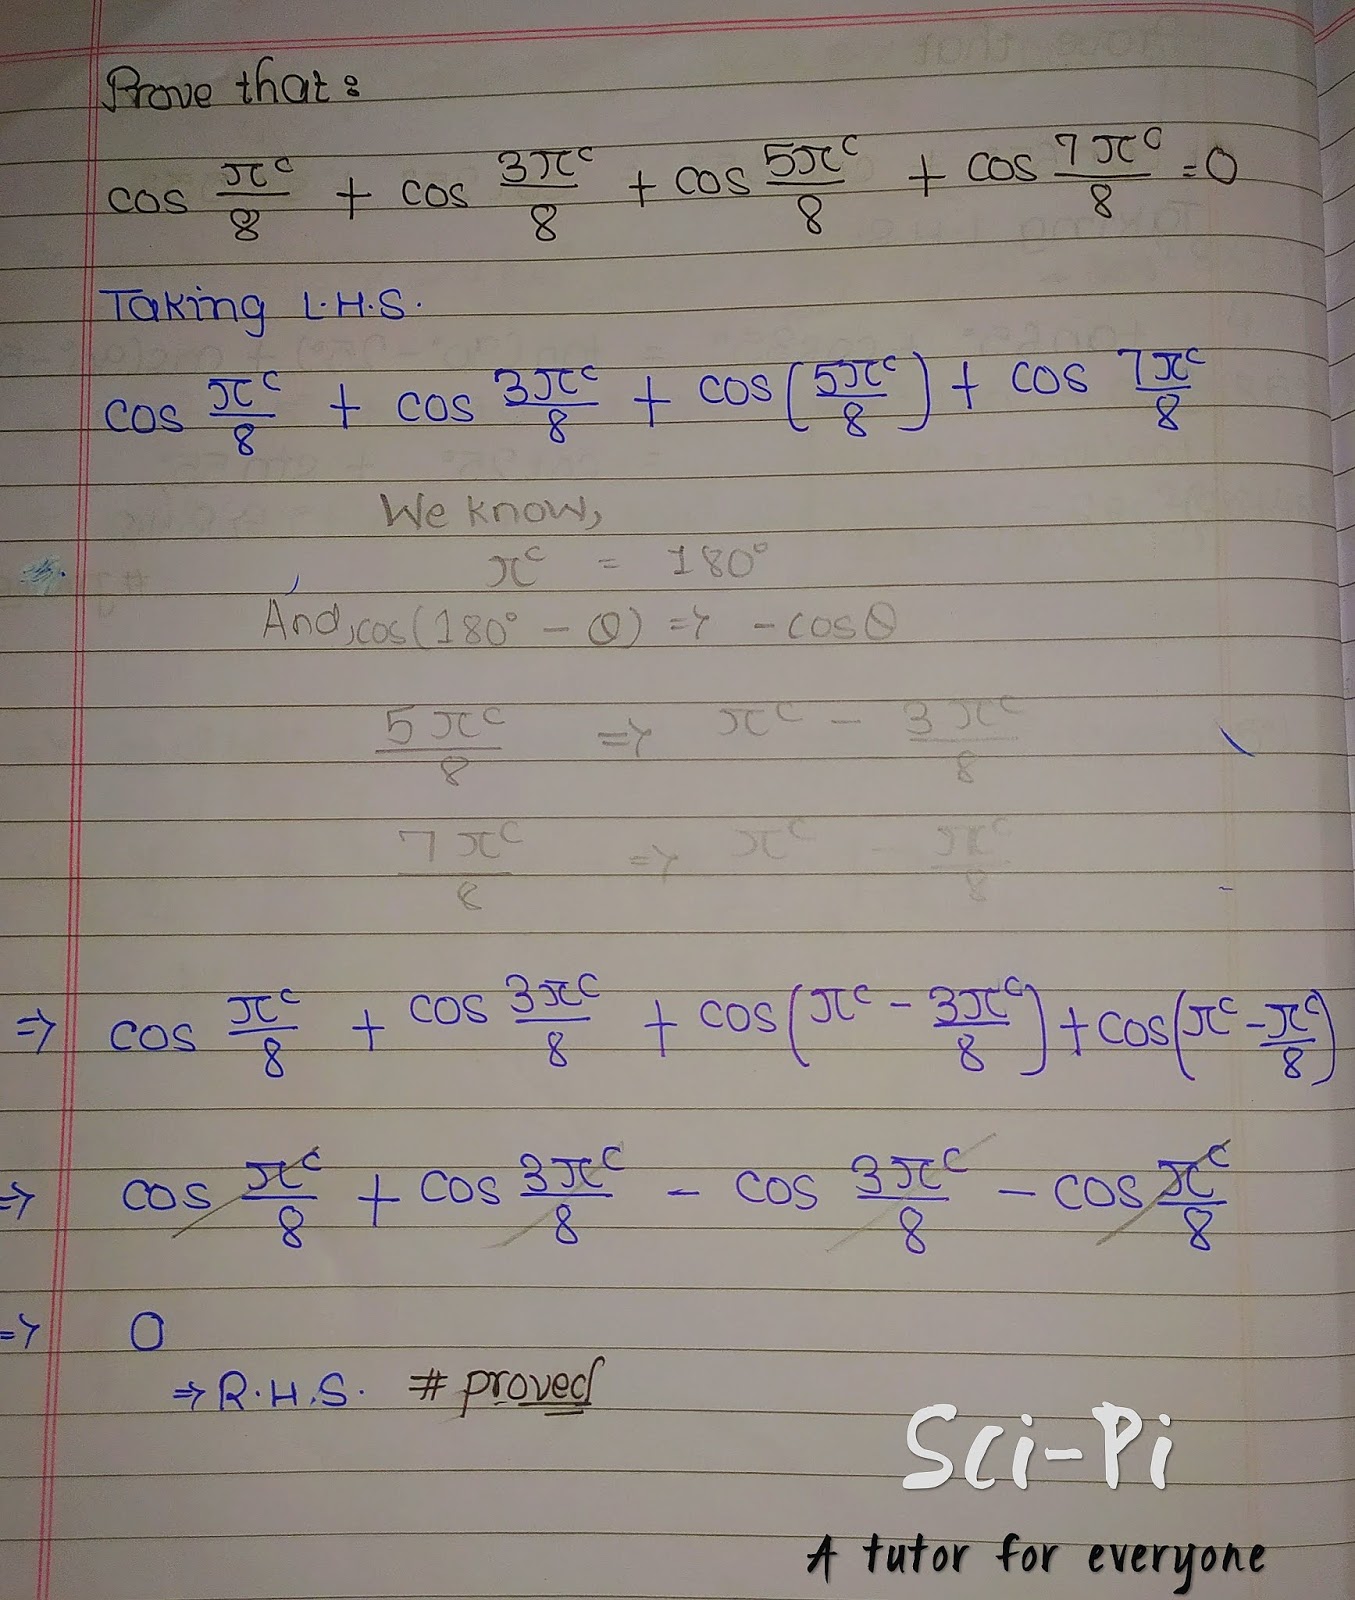 Prove that :
cos πᶜ/8 + cos 3πᶜ/8 + cos 5πᶜ/8 + cos 7πᶜ/8 = 0
Taking L.H.S.
cos πᶜ/8 + cos 3πᶜ/8 + cos (5πᶜ/8) + cos 7πᶜ/8
We know,
πᶜ = 180°
And, cos(180° - θ) => -cosθ
5πᶜ/8 => πᶜ - 3πᶜ/8
7πᶜ/8 => πᶜ - πᶜ/8
=> cos πᶜ/8 + cos 3πᶜ/8 + cos(πᶜ - 3πᶜ/8) + cos(πᶜ - πᶜ/8)
=> cos πᶜ/8 + cos 3πᶜ/8 - cos 3πᶜ/8 - cos πᶜ/8
=> 0
=> R.H.S. # proved
Sci-Pi
A tutor for everyone